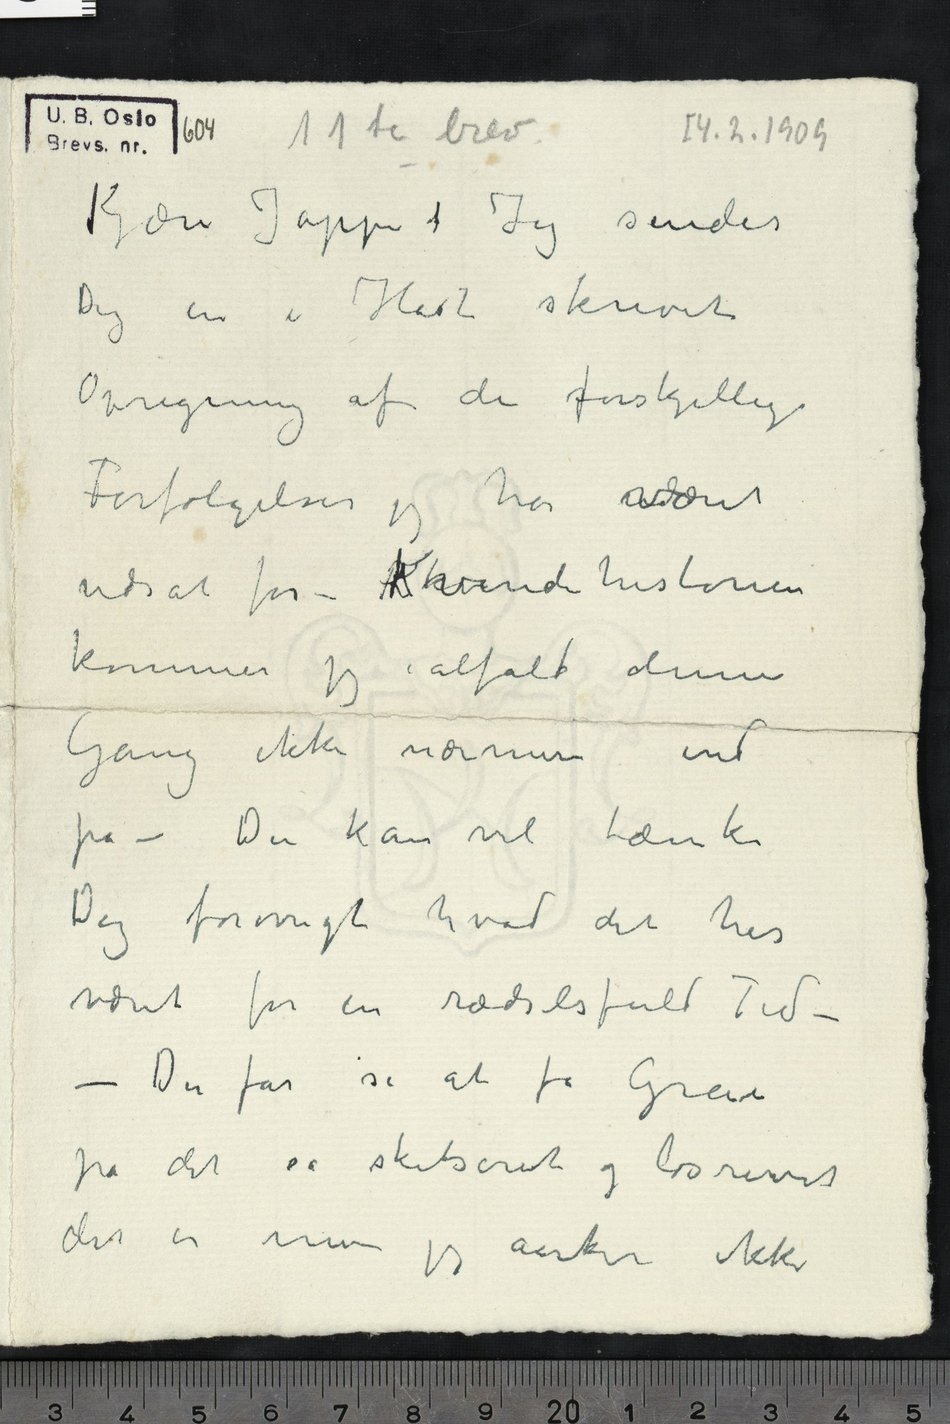 U. B. Oslo
Brevs. nr. 604
11te brev.
14.2.1909
Kjære Jappe! Jeg sender
Dig en i Hast skrevet
Opregning af de forskjellige
Forfølgelser jeg har været
udsat for – Kvindehistorien
kommer jeg ialfald denne
Gang ikke nærmere ind
på – Du kan vel tænke
Dig forøvrigt hvad det har
været for en rædselsfuld Tid –
– Du får se at få Greie
på det så skitseret og løsrevet
det er men jeg orker ikke
3 4 5 6 7 8 9 20 1 2 3 4 5